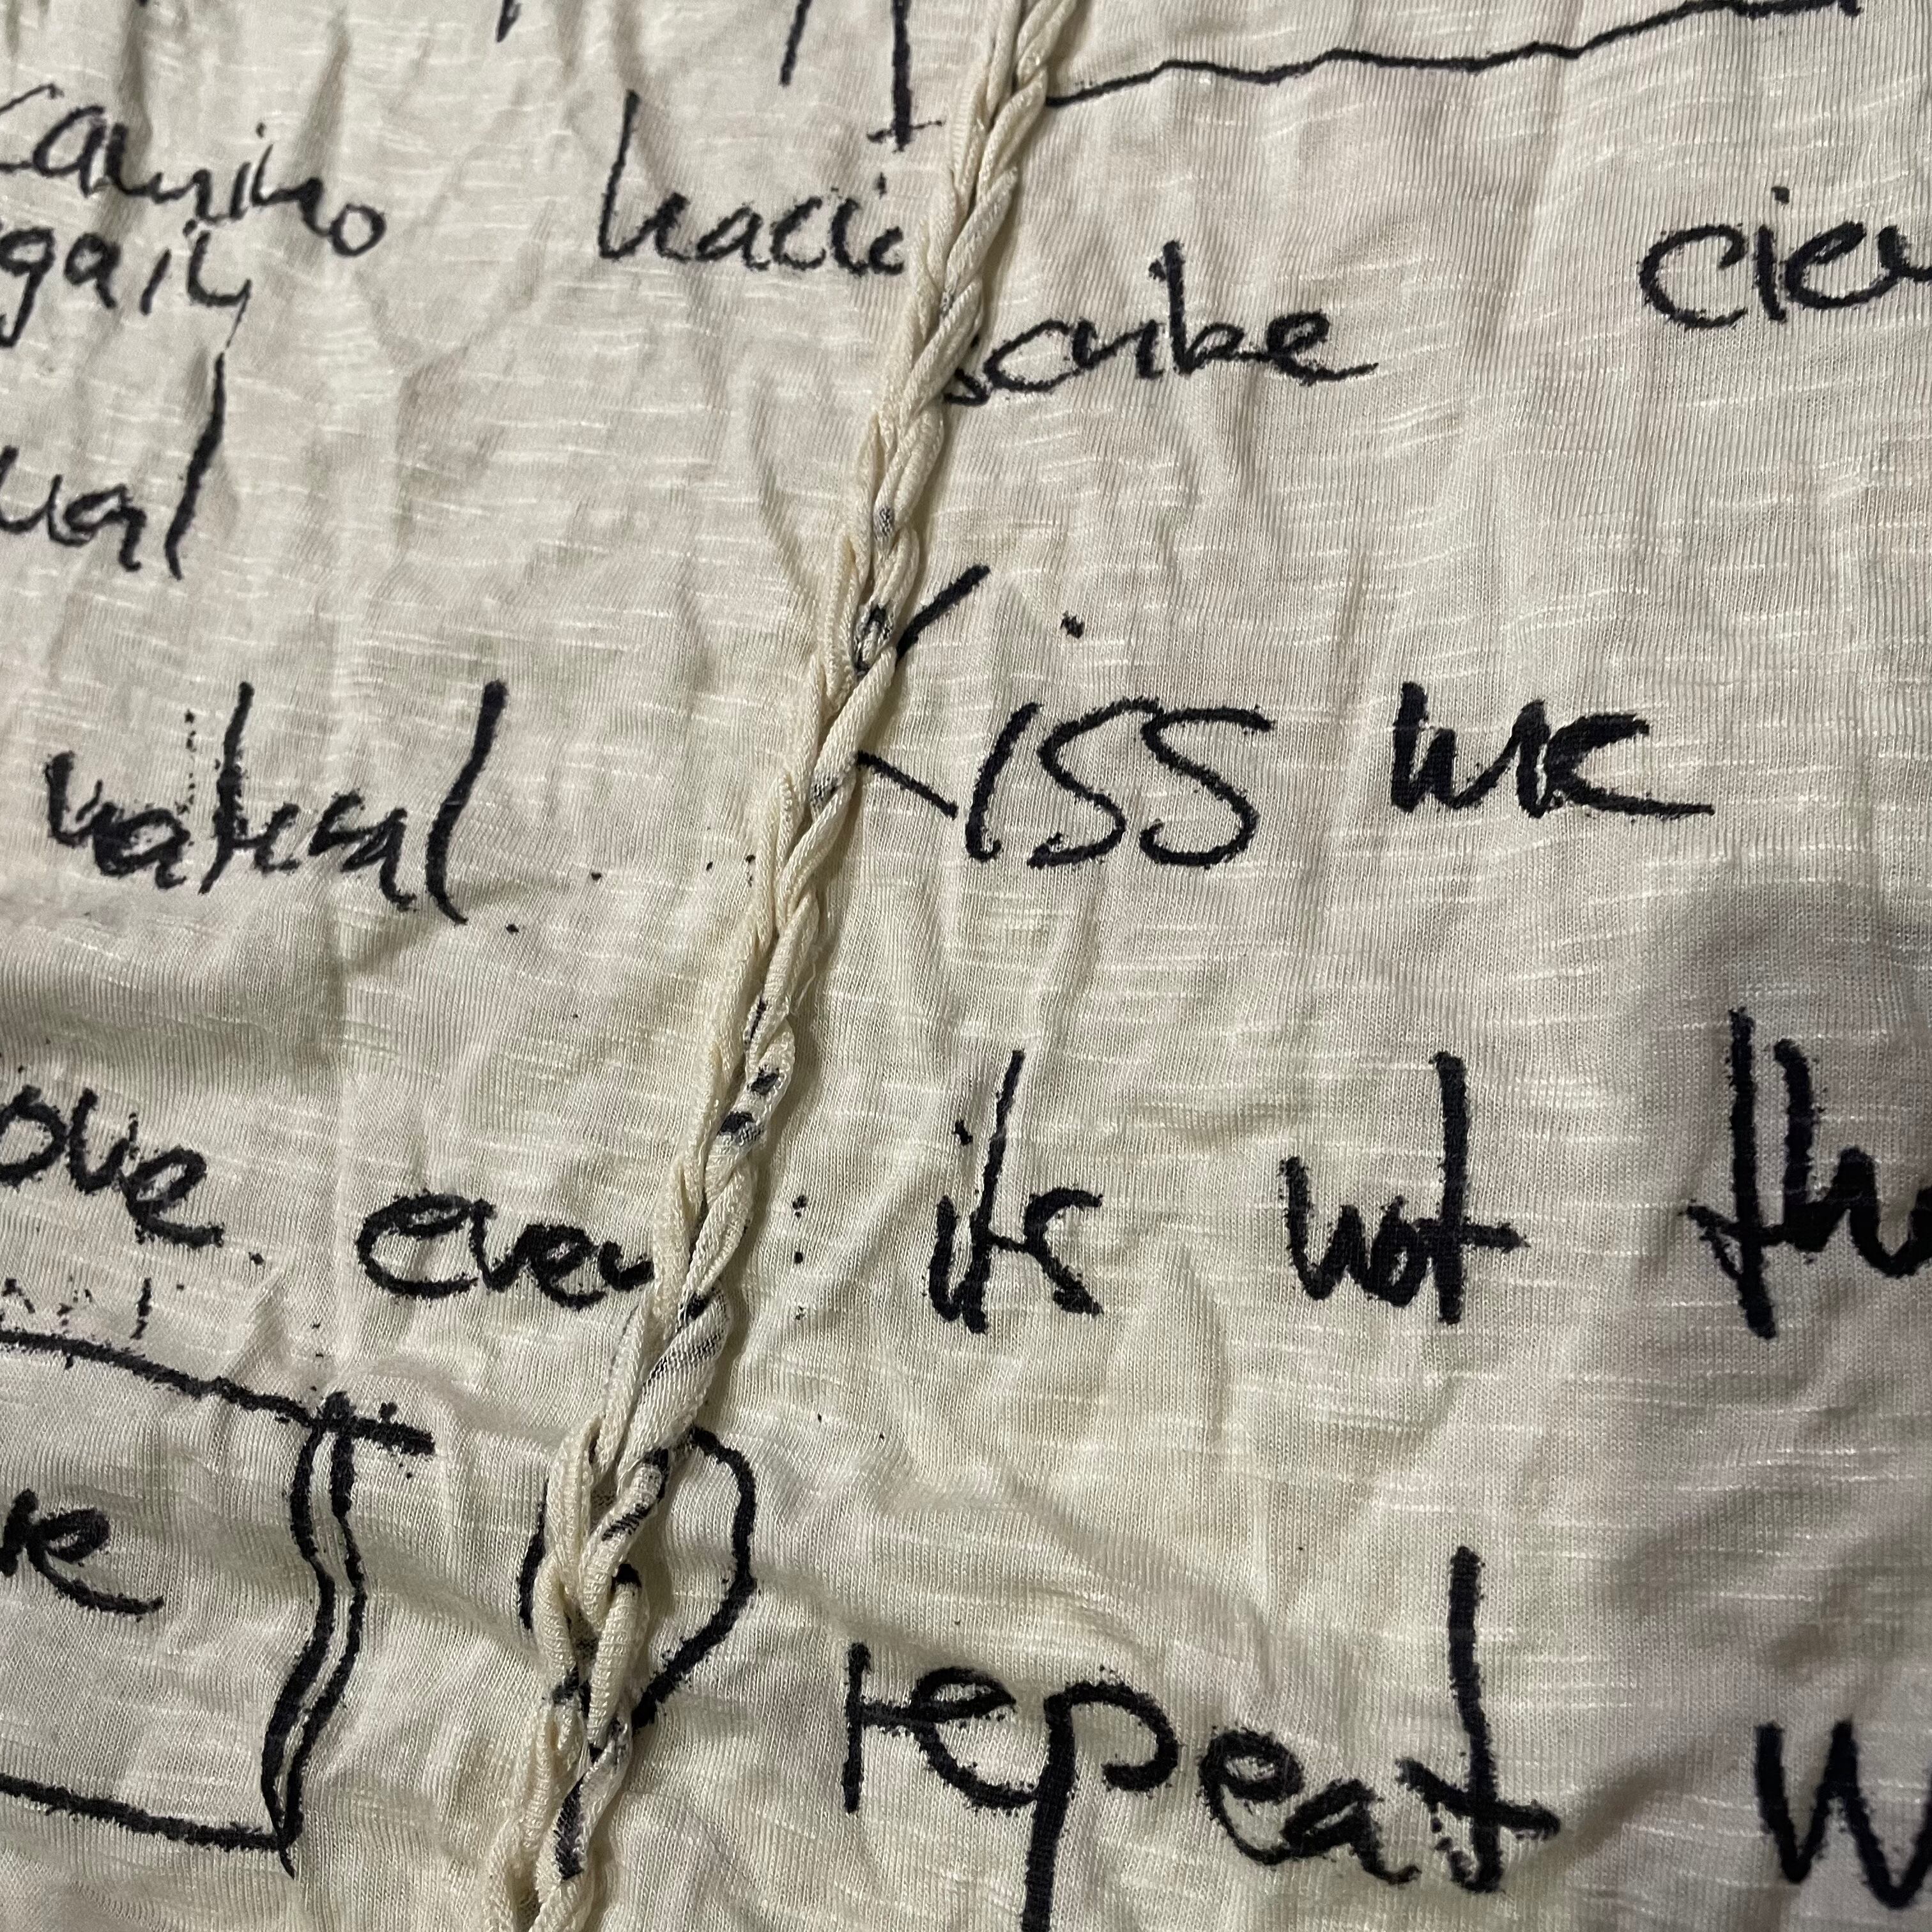 camino haci cie
again scribe
ual
natural kiss me
ove even its not th
re repeat w